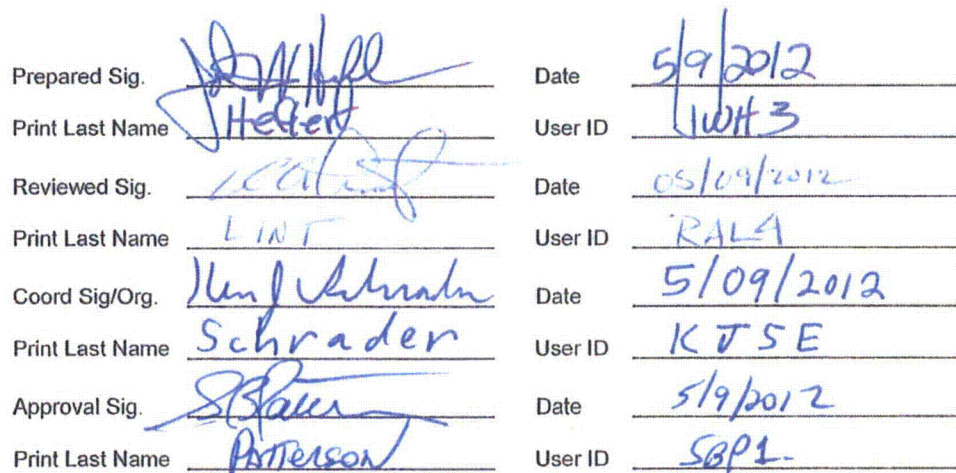 Prepared Sig. Date 5/9/2012
Print Last Name Hefler User ID JWH3
Reviewed Sig. Date 05/09/2012
Print Last Name LINT User ID RAL4
Coord Sig/Org. Date 5/09/2012
Print Last Name Schrader User ID KJSE
Approval Sig. Date 5/9/2012
Print Last Name PATTERSON User ID SBP1.